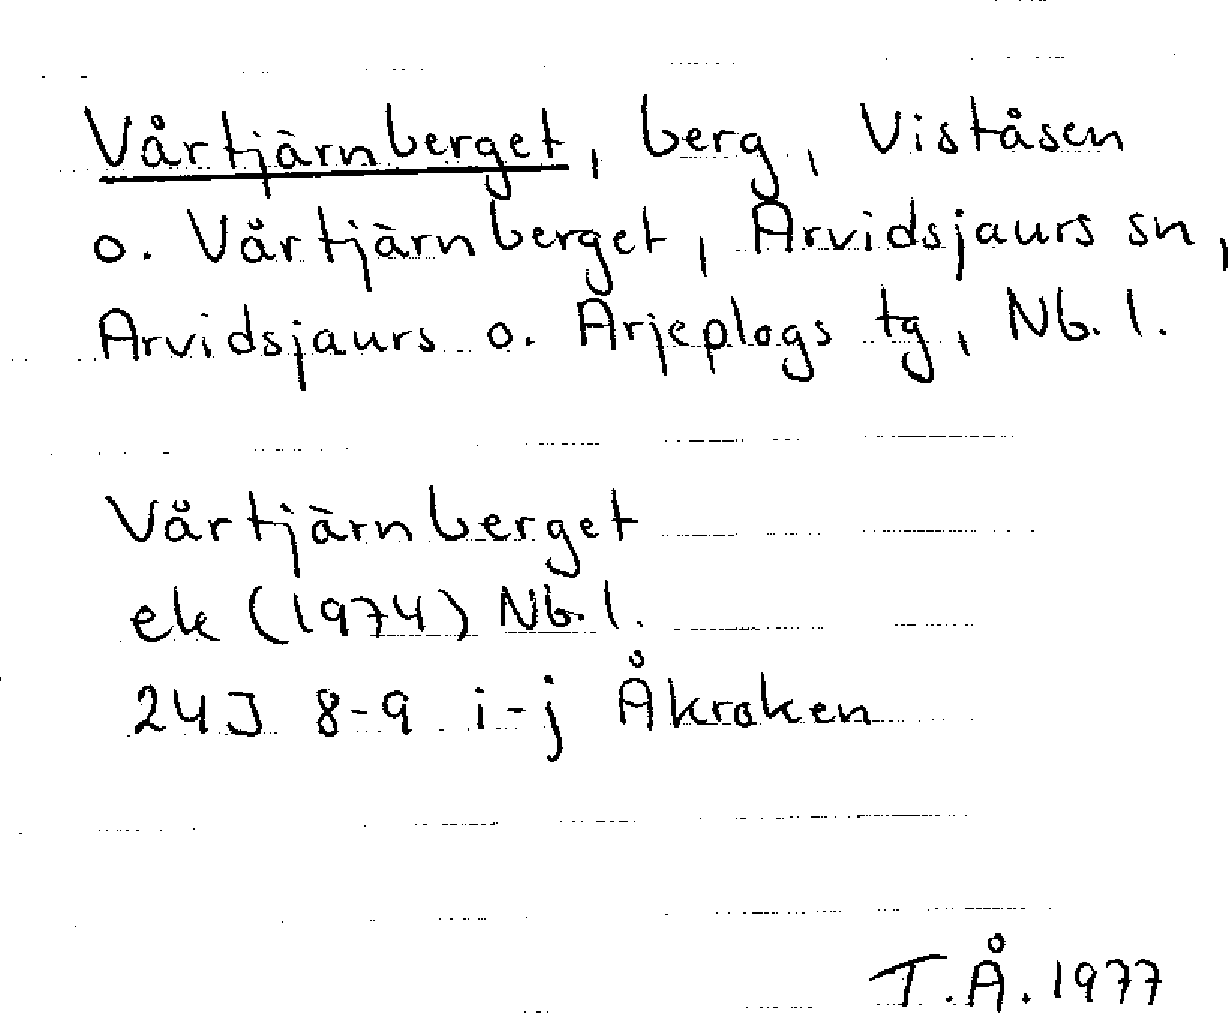 Vårtjärnberget, berg, Viståsen
o. Vårtjärnberget, Arvidsjaurs sn,
Arvidsjaurs o. Arjeplogs tg, Nb. l.
Vårtjärnberget
ek (1974) Nb. l.
24J 8-9 i-j Åkroken
T.Å. 1977